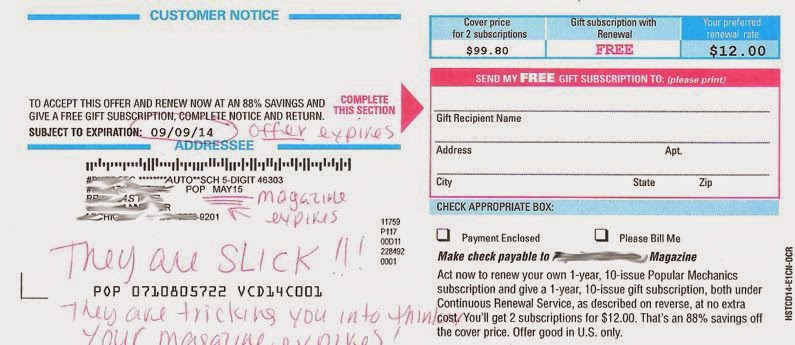 CUSTOMER NOTICE
TO ACCEPT THIS OFFER AND RENEW NOW AT AN 88% SAVINGS AND
GIVE A FREE GIFT SUBSCRIPTION, COMPLETE NOTICE AND RETURN.
SUBJECT TO EXPIRATION: 09/09/14 Offer expires
COMPLETE
THIS SECTION
ADDRESSEE
********AUTO**SCH 5-DIGIT 46303
POP MAY15
magazine
expires
-9201
11759
P117
00D11
228492
0001
They are SLICK !!!
POP 0710805722 VCD14C001
They are tricking you into thinking
your magazine expires!
Cover price
for 2 subscriptions
$99.80
Gift subscription with
Renewal
FREE
Your preferred
renewal rate
$12.00
SEND MY FREE GIFT SUBSCRIPTION TO: (please print)
Gift Recipient Name
Address Apt.
City State Zip
CHECK APPROPRIATE BOX:
Payment Enclosed Please Bill Me
Make check payable to Magazine
Act now to renew your own 1-year, 10-issue Popular Mechanics
subscription and give a 1-year, 10-issue gift subscription, both under
Continuous Renewal Service, as described on reverse, at no extra
cost. You'll get 2 subscriptions for $12.00. That's an 88% savings off
the cover price. Offer good in U.S. only.
HSTCD14-E1CII-OCR